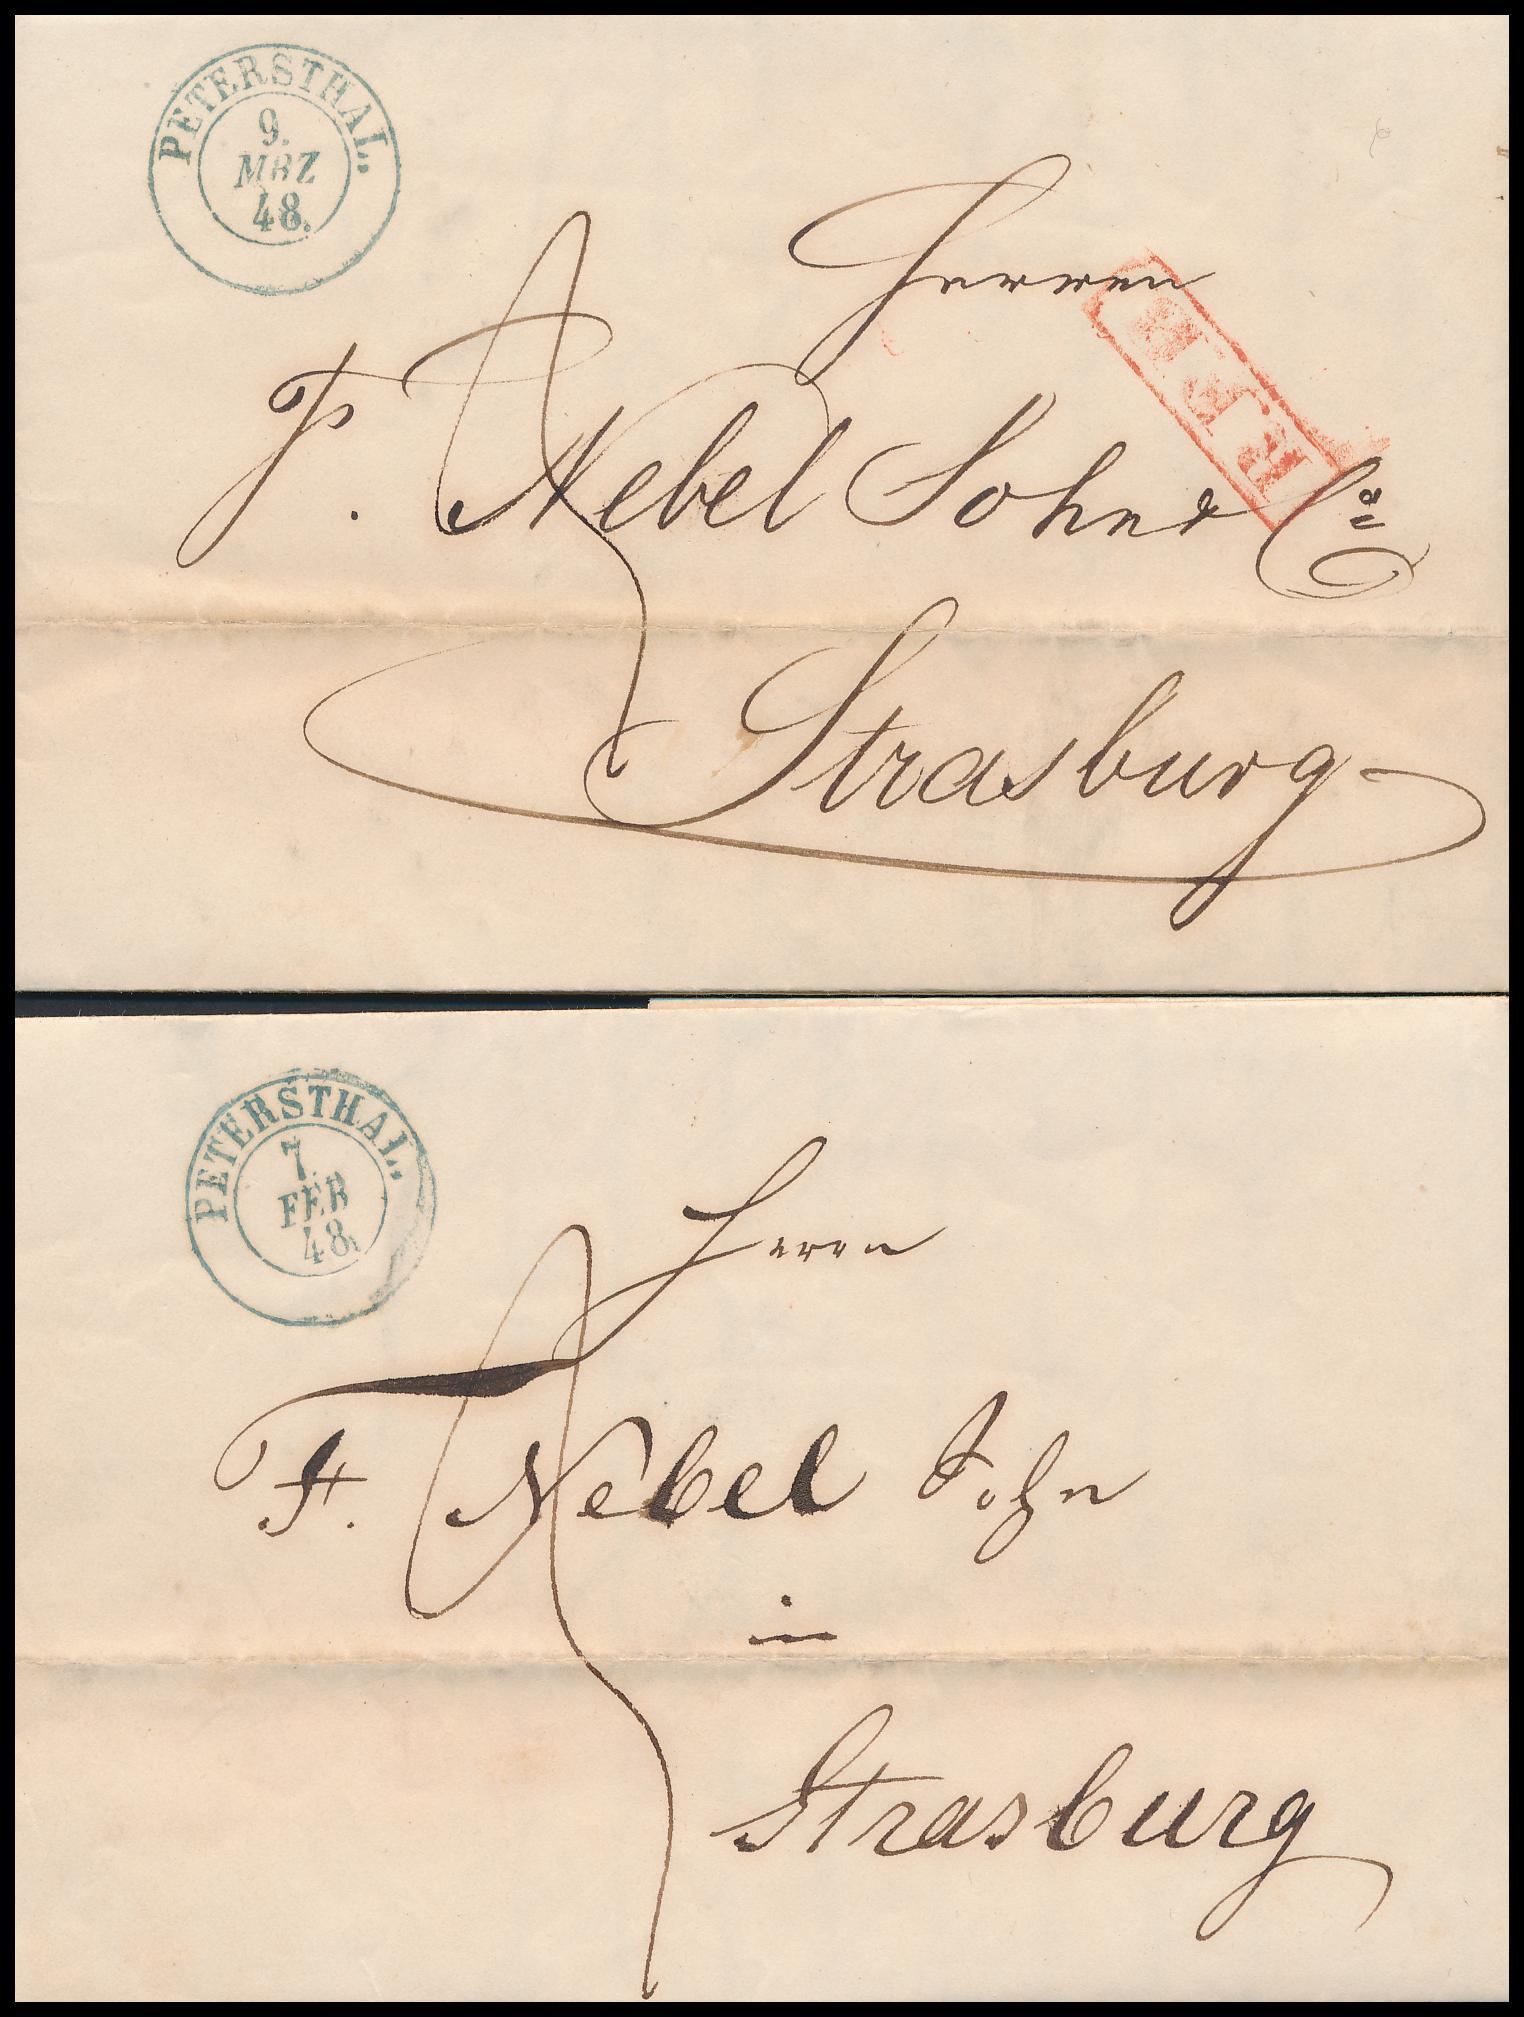 PETERSTHAL.
9.
MRZ
48.
Herren
F. Nebel Sohn & Co
Strasburg
PETERSTHAL.
7.
FEB
48.
Herrn
F. Nebel Sohn
in
Strasburg